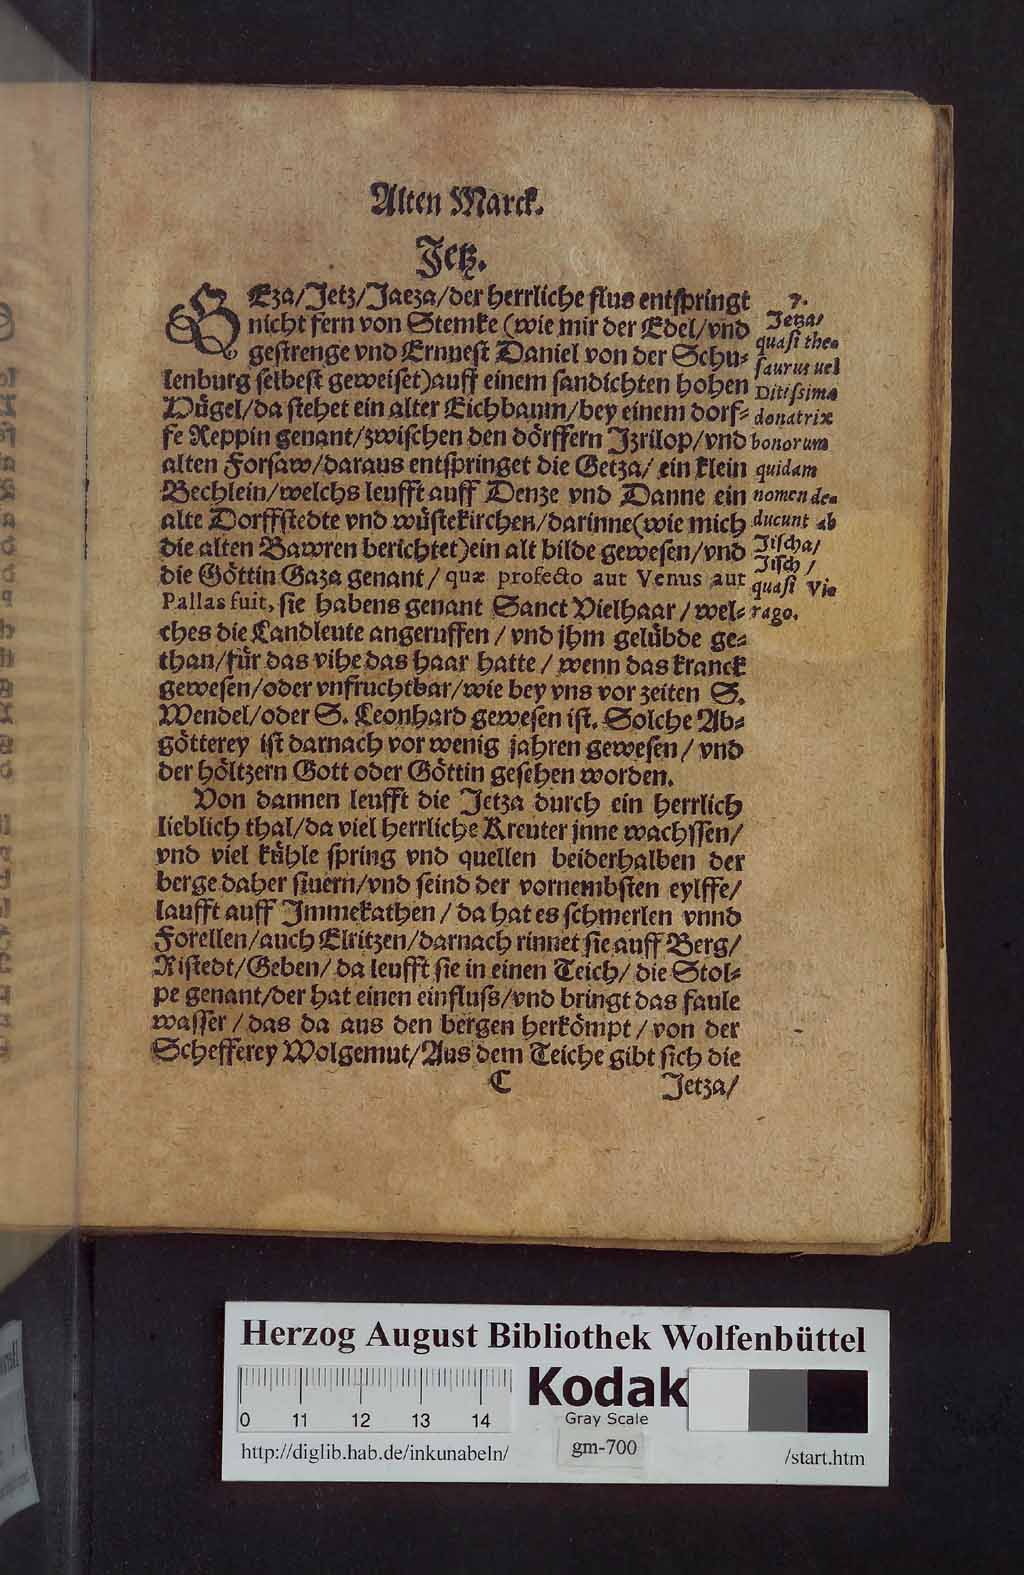 Alten Marck.
Jetz.
GEza/Jetz/Jaeza/der herrliche flus entspringt
nicht fern von Stemke (wie mir der Edel/vnd
gestrenge vnd Ernuest Daniel von der Schu-
lenburg selbest geweiset)auff einem sandichten hohen
Hügel/da stehet ein alter Eichbaum/bey einem dorf-
fe Reppin genant/zwischen den dörffern Jzrilop/vnd
alten Forsaw/daraus entspringet die Getza/ ein klein
Bechlein/welchs leufft auff Denze vnd Danne ein
alte Dorffstedte vnd wüstekirchen/darinne(wie mich
die alten Bawren berichtet)ein alt bilde gewesen/vnd
die Göttin Gaza genant/ quæ profecto aut Venus aut
Pallas fuit, sie habens genant Sanct Vielhaar/wel-
ches die Landleute angeruffen/vnd jhm gelübde ge-
than/für das vihe das haar hatte/wenn das kranck
gewesen/oder vnfruchtbar/wie bey vns vor zeiten S.
Wendel/oder S. Leonhard gewesen ist. Solche Ab-
götterey ist darnach vor wenig jahren gewesen/vnd
der höltzern Gott oder Göttin gesehen worden.
Von dannen leufft die Jetza durch ein herrlich
lieblich thal/da viel herrliche Kreuter jnne wachssen/
vnd viel kühle spring vnd quellen beiderhalben der
berge daher siuern/vnd seind der vornembsten eylffe/
laufft auff Jmmekathen/da hat es schmerlen vnnd
Forellen/auch Elritzen/darnach rinnet sie auff Berg/
Ristedt/Geben/da leufft sie in einen Teich/die Stol-
pe genant/der hat einen einfluss/vnd bringt das faule
wasser/das da aus den bergen herkömpt/von der
Schefferey Wolgemut/Aus dem Teiche gibt sich die
C Jetza/
7.
Jetza/
quasi the-
saurus uel
Ditissima
donatrix
bonorum
quidam
nomen de-
ducunt ab
Jtscha/
Jtsch/
quasi Vi-
rago.
Herzog August Bibliothek Wolfenbüttel
Kodak
Gray Scale
0 11 12 13 14
http://diglib.hab.de/inkunabeln/
gm-700
/start.htm